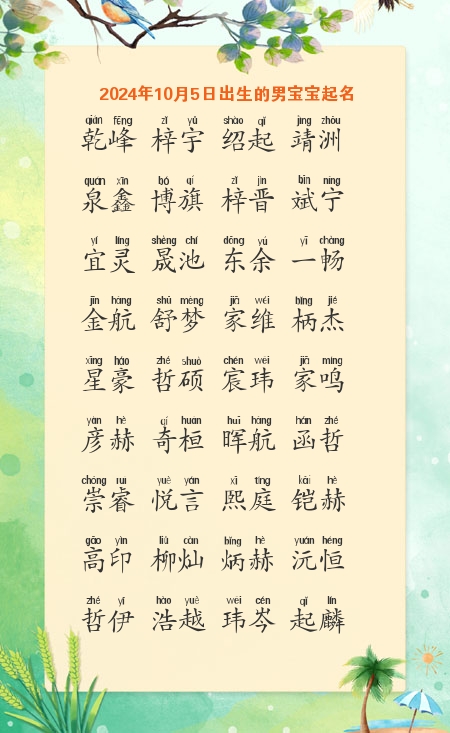 2024年10月5日出生的男宝宝起名
qián fēng zǐ yǔ shào qǐ jìng zhōu
乾峰 梓宇 绍起 靖洲
quán xīn bó qí zǐ jìn bīn níng
泉鑫 博旗 梓晋 斌宁
yí líng shèng chí dōng yú yī chàng
宜灵 晟池 东余 一畅
jīn háng shū mèng jiā wéi bǐng jié
金航 舒梦 家维 柄杰
xīng háo zhé shuò chén wěi jiā míng
星豪 哲硕 宸玮 家鸣
yàn hè qí huán huī háng hán zhé
彦赫 奇桓 晖航 函哲
chóng ruì yuè yán xī tíng kǎi hè
崇睿 悦言 熙庭 铠赫
gāo yìn liǔ càn bǐng hè yuán héng
高印 柳灿 炳赫 沅恒
zhé yī hào yuè wěi cén qǐ lín
哲伊 浩越 玮岑 起麟